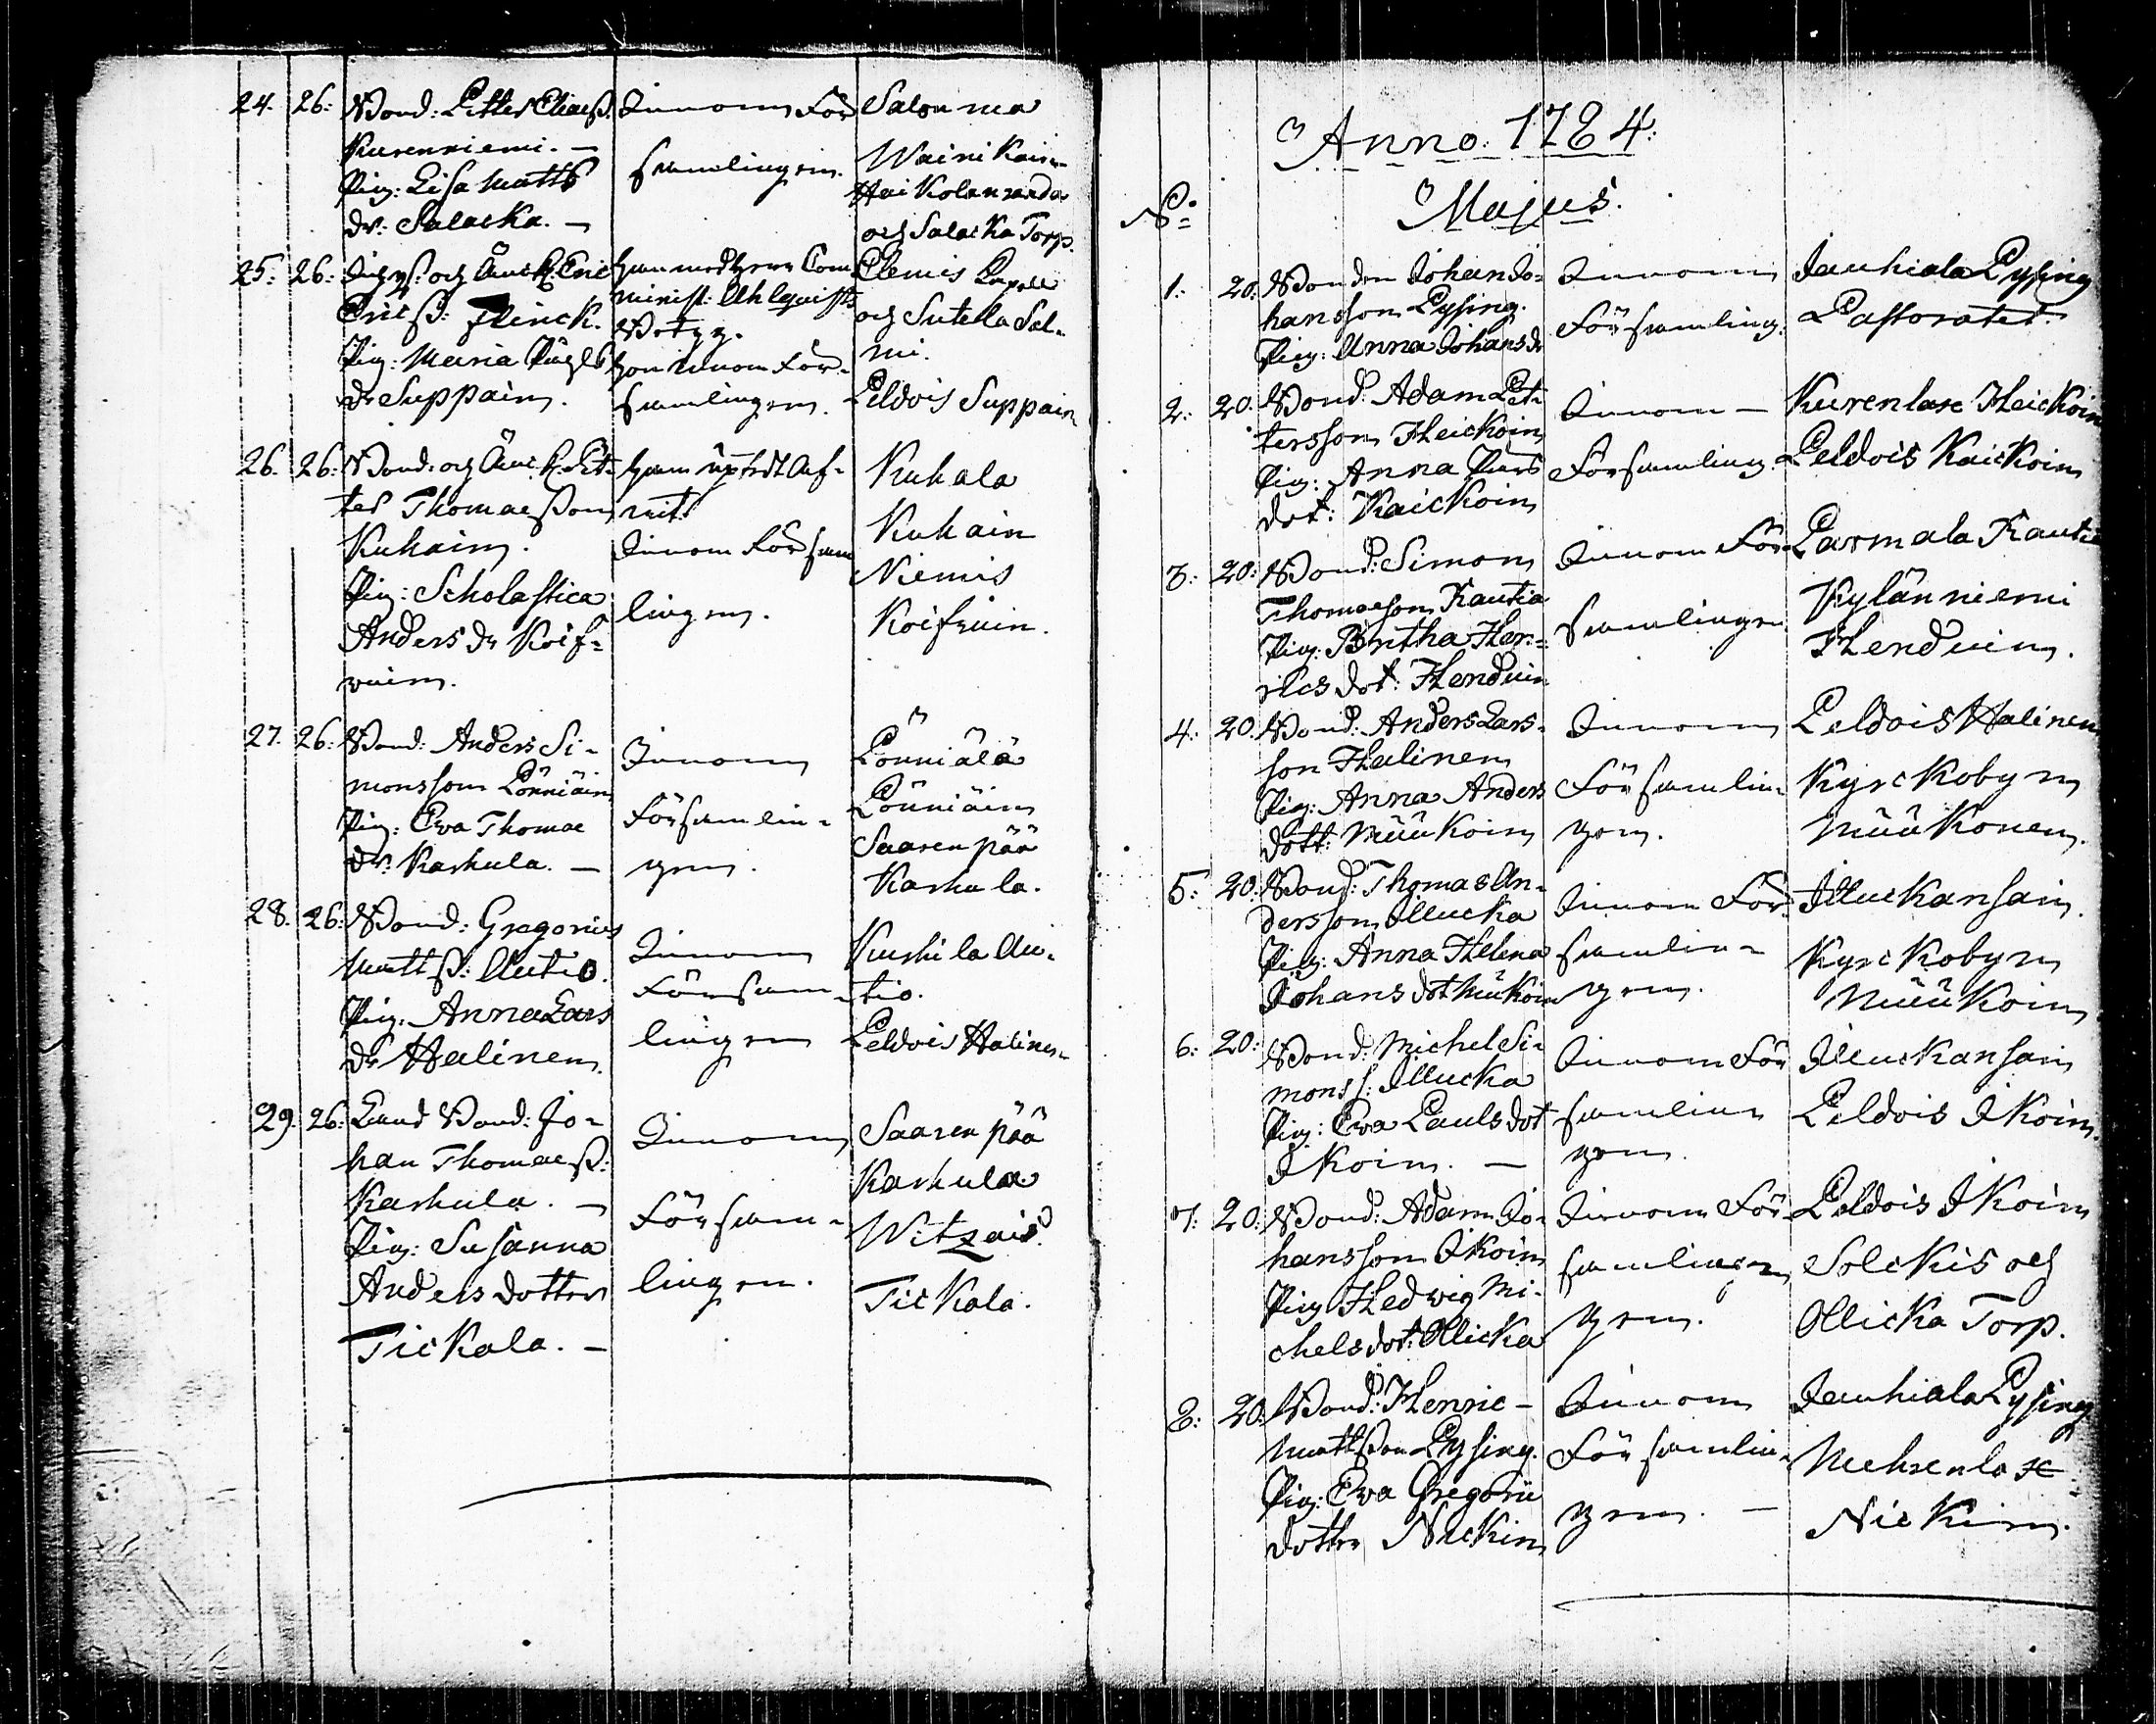 24. 26: Bond: Petter Eliaß.
Kurenniemi. —
Pig: Lisa Matts
dr: Salacka. —
Innom För
samlingen.
Salou ma
Wainikain
Haikolanranda
och Salacka Torp.
25: 26: och Eric
Ericß: Flinck.
Pig: Maria
dr Suppain.
Com
minist: Ahlquists
Betyg.
hon innom För-
samlingen.
Clemis Capell
och Sutella Sal-
mi.
Peldois Suppain
26. 26: Bond: och Pet-
ter Thomaeßon
Kuhain.
Pig: Scholastica
Anders dr Koif-
vain.
Innom Försam
lingen.
Kuhala
Kuhain
Niemis
27. 26: Bond: Anders Si-
monsson Pönniäin
Pig: Eva Thomae
dr: Karhula. —
Innom
Församlin-
gen.
Pönniälä
Pönniäin
Saarenpää
Karhula.
28. 26: Bond: Gregorius
Mattß: Autio.
Pig: Anna Lars
dr Halinen.
Innom
Försam-
lingen
Kurhila Au-
tio.
Peldois Halinen
29. 26: Land Bond: Jo-
han Thomaeß:
Karhula. —
Pig: Susanna
Anders dotter
Tickala. —
Innom
Försam-
lingen.
Saarenpää
Karhula
Witzais
Tickala.
Anno. 1784:
Majus.
No:
1: 20: Bonden Johan Jo-
hansson Pysing.
Pig: Anna Johans dr
Innom
Församling:
Jauhiala Pysing
Pastoratet.
2: 20: Bond: Adam Pet-
tersson Heickoin
Pig: Anna Pärs
dot: Kaickoin
Innom —
Församling:
Kurenlax Heickoin
Peldois Kaickoin
3: 20: Bond: Simon
Thomaeson Rautia
Pig: Bertha Hen-
rics dot: Henduin
Innom För-
samlingen
Parmala Rautia
Kylänniemi
Henduin.
4: 20. Bond: Anders Lars-
son Halinen
Pig: Anna Anders
dott: Müükoin
Innom
Församlin-
gen.
Peldois Halinen
Kyrckobyn
Müükonen.
5: 20: Bond: Thomas An-
dersson Illucka
Pig: Anna Helena
Johans dot Mükoin
Innom För-
samlin-
gen.
Illuckansain.
Kyrckobyn
Müükoin
6: 20: Bond: Michel Si-
monss: Illucka
Pig: Eva Pauls dot
Ikoin. —
Innom För
samlin-
gen.
Illuckansain
Peldois Ikoin.
7: 20: Bond: Adam Jo-
hansson Ikoin
Pig: Hedvig Mi-
chels dot: Ollicka
Innom För-
samlingen
gen.
Peldois Ikoin
Solckis och
Ollicka Torp.
8: 20: Bond: Henric —
Mattßon Pysing.
Pig: Eva Gregorii
dotter Nickin
Innom
Församlin-
gen. —
Jauhiala Pysing
Mehrenlax
Nickin.